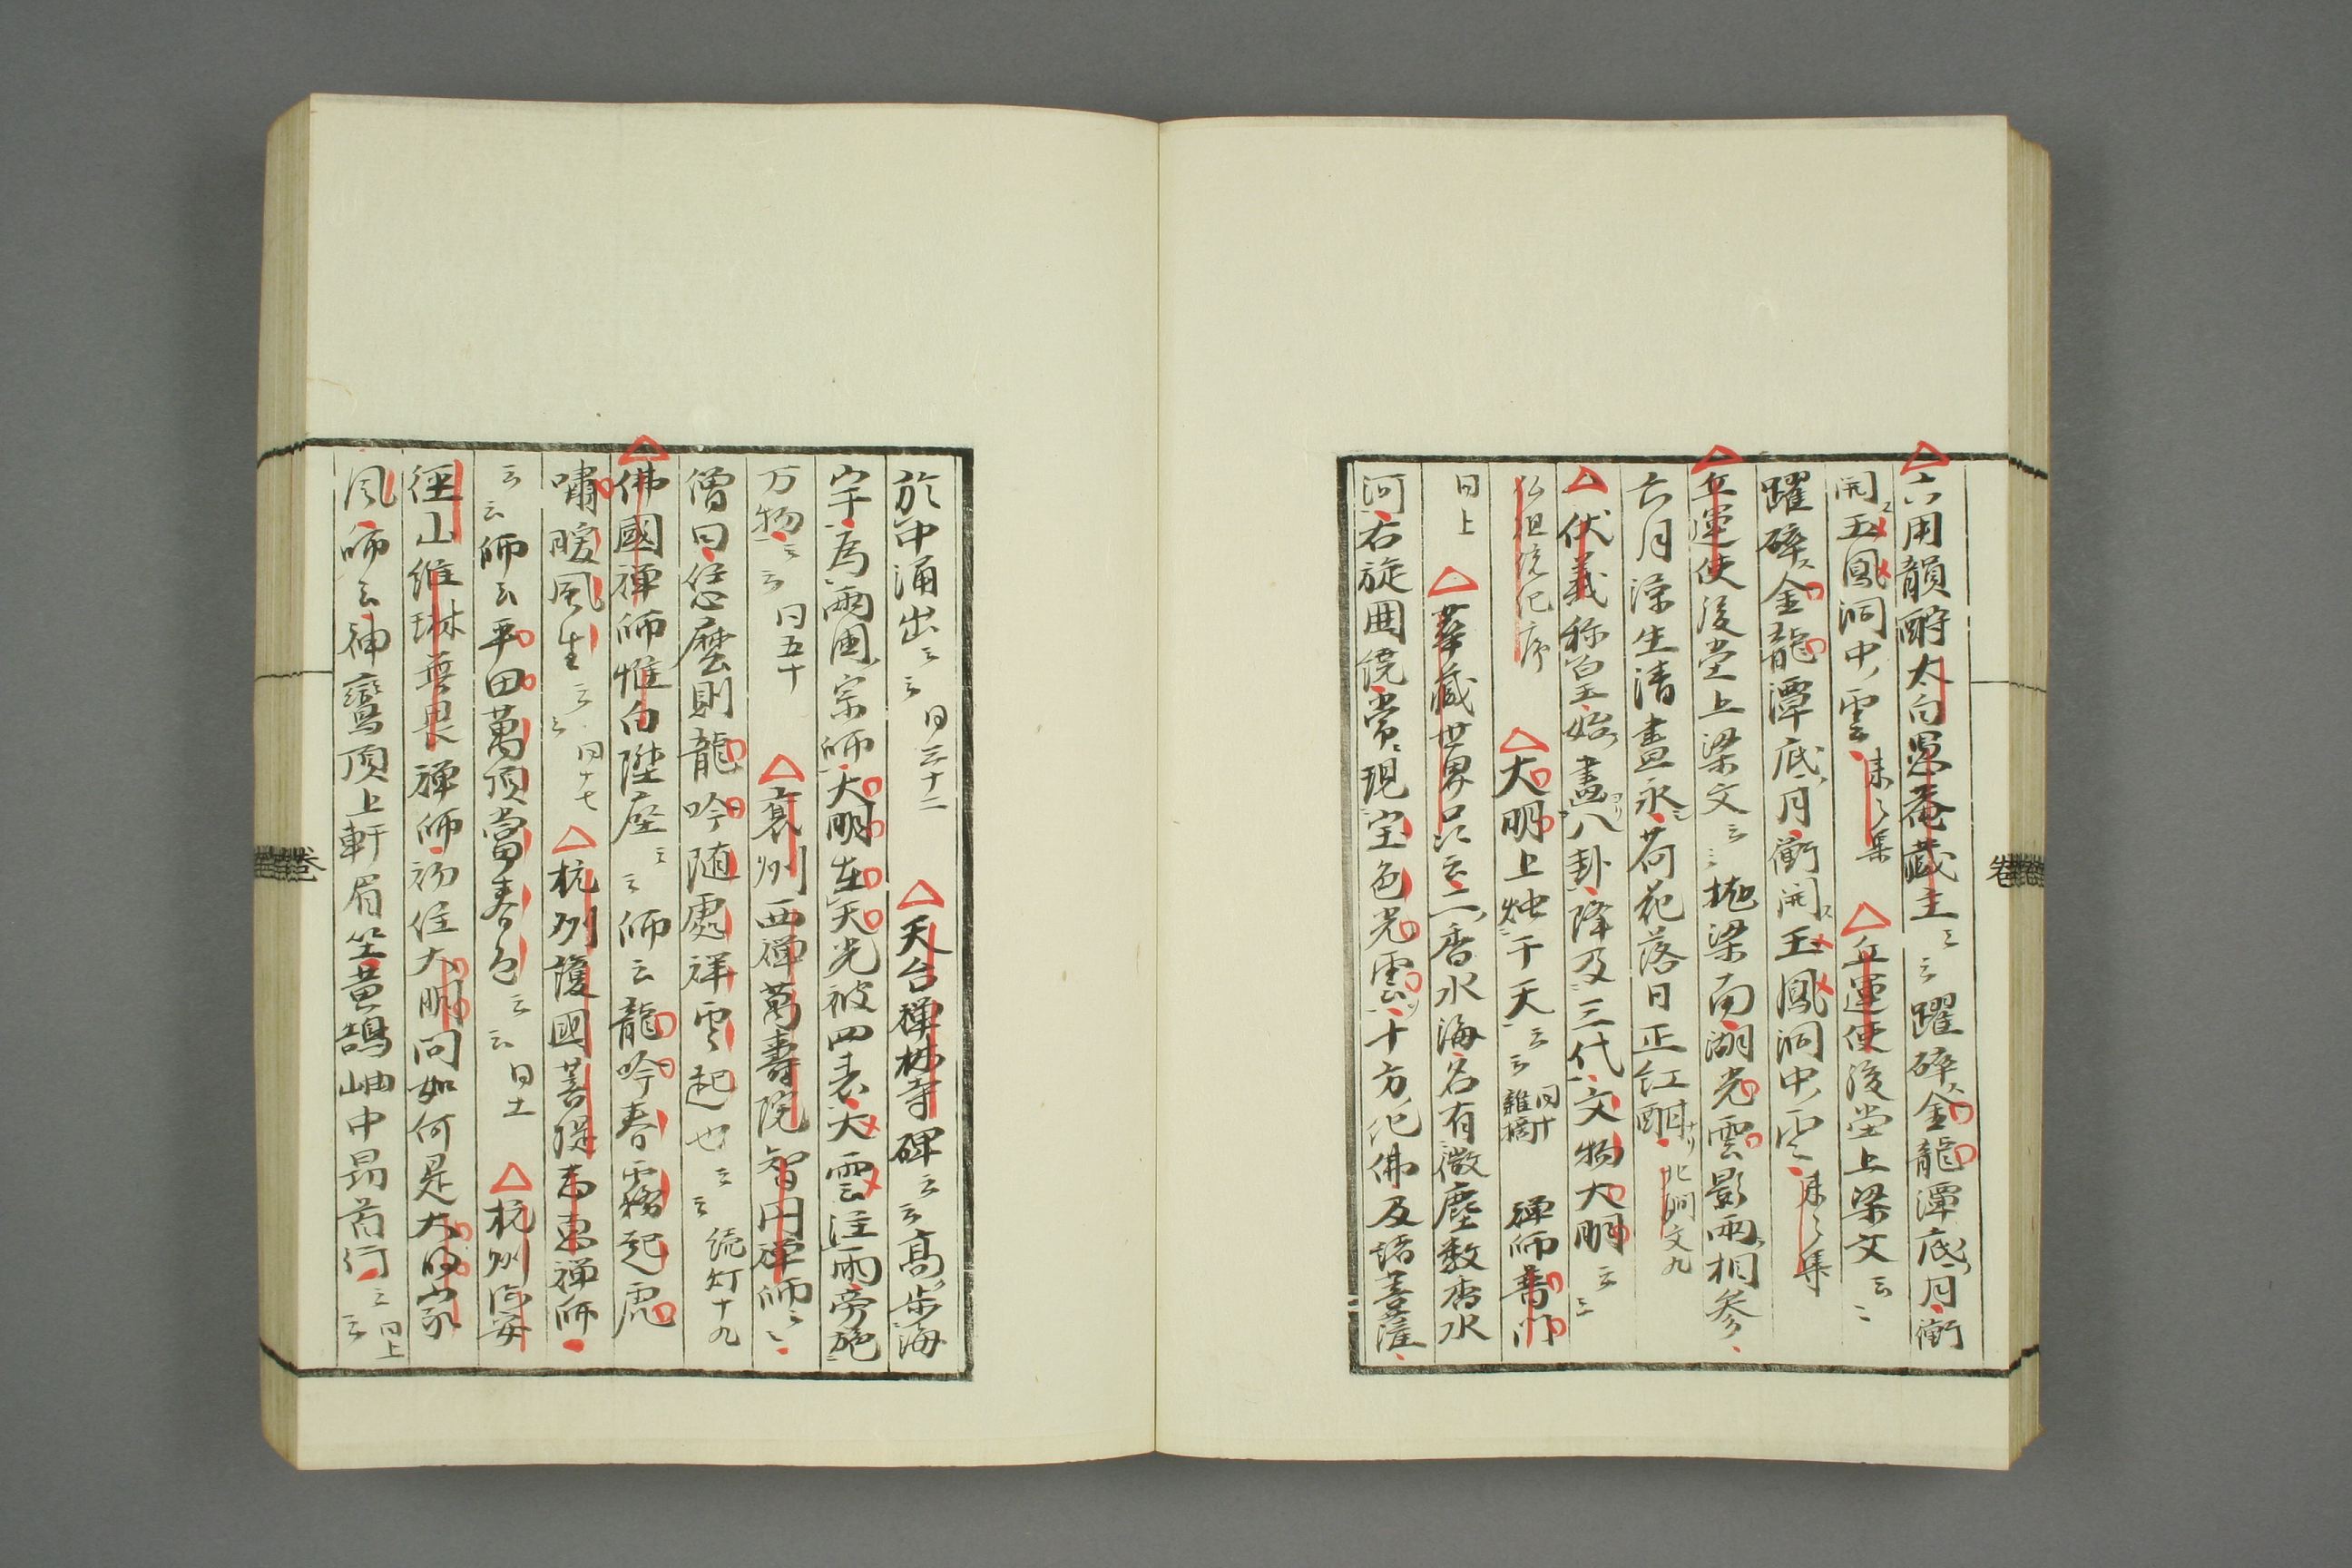 六用韻酧太白愚菴藏主云云躍碎金龍潭底月衝
開玉鳳洞中雲 集 丘運使後堂上梁文云云
躍碎金龍潭底月衝開玉鳳洞中雲 集
丘運使後堂上梁文云云抛梁南湖光雲影兩相参
六月涼生清晝永荷花落日正紅酣 北磵文九
伏羲称皇始畫八卦降及三代文物大明云云
仏祖統紀序 大明上燭于天云云 同十 雜摘 禅師普門
同上 華藏世界品云二香水海名有微塵数香水
河右旋囲繞常現宝色光雲十方化佛及諸菩薩
於中涌出云云 同三十二 天台禅林寺碑云云高步海
宇為兩国宗師大明在天光被四表大雲注雨旁施
万物云云 同五十 袁州西禅萬壽院智円禅師
僧曰恁麼則龍吟随處祥雲起也云云 続灯十九
佛國禅師惟白陞座云云師云龍吟春霧起虎
嘯暖風生云云 同十七 杭州護國菩提志専禅師
云云師云平田萬頃當春色云云 同十 杭州臨安
徑山維琳無畏禅師初住大明問如何是大明家
風師云神鸞頂上軒眉坐黄鵠岫中昂首行云云 同上
卷
卷